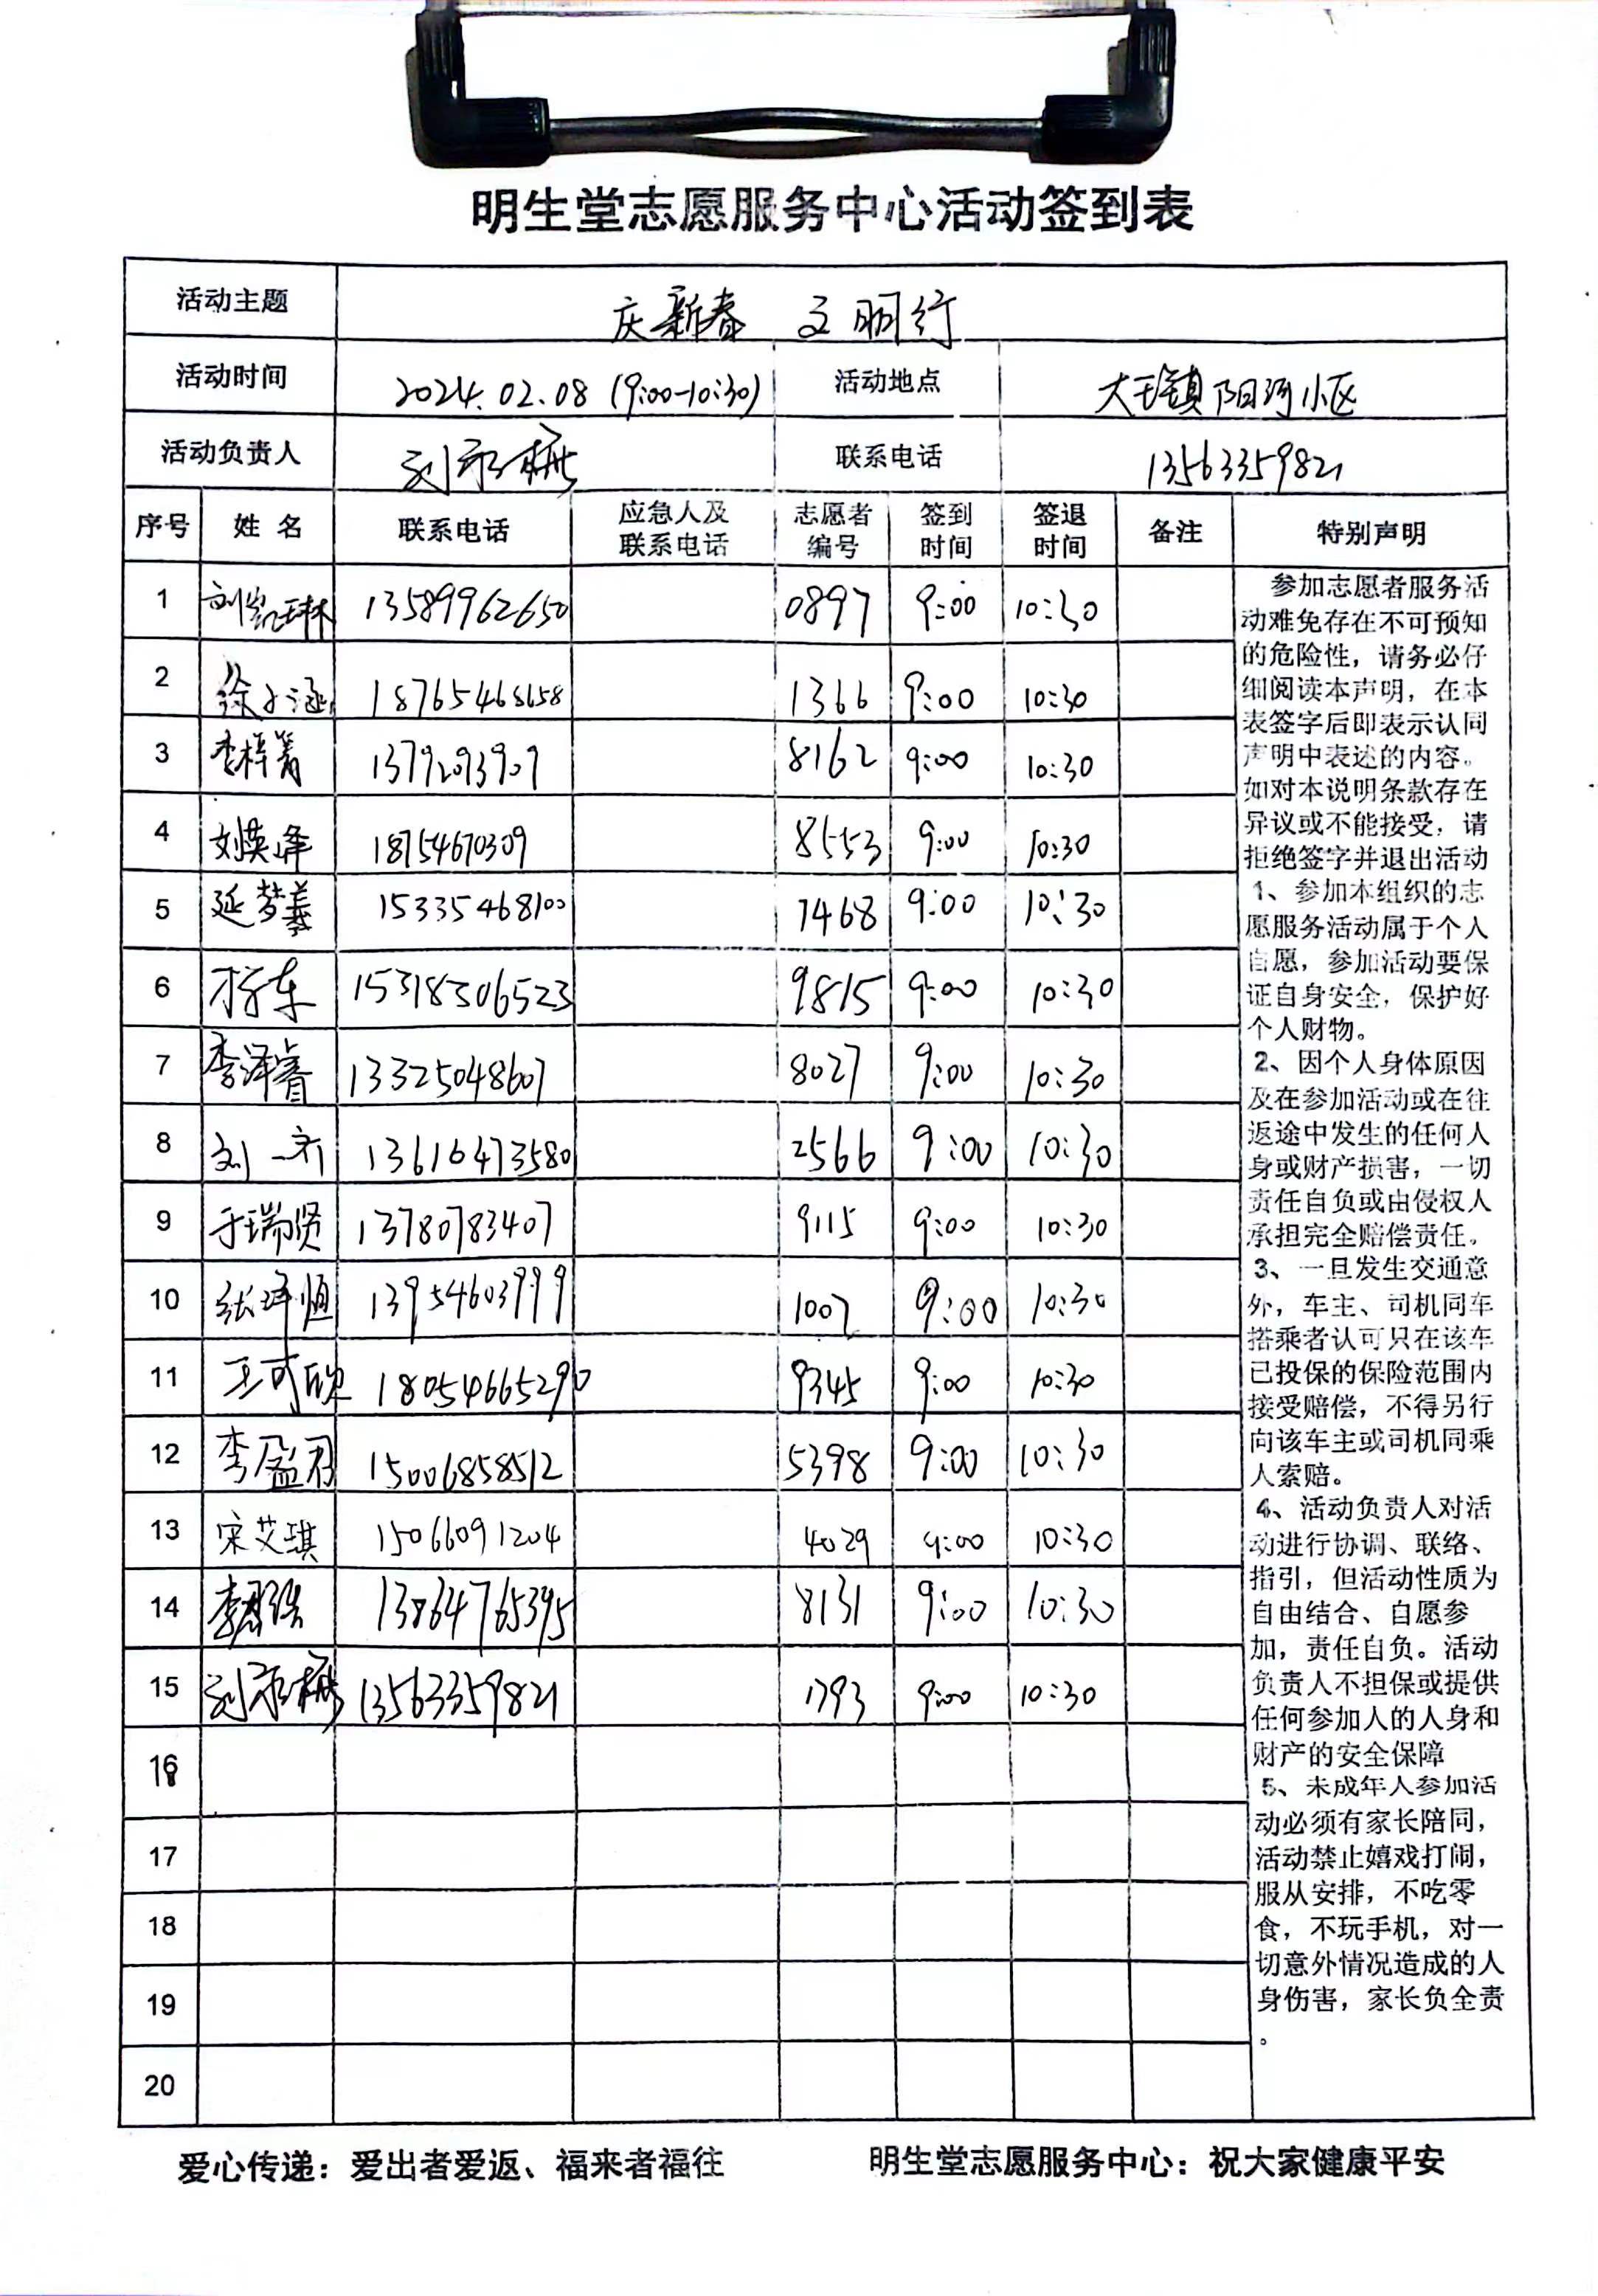 明生堂志愿服务中心活动签到表
活动主题 庆新春 文明行
活动时间 2024.02.08 (9:00-10:30) 活动地点 大王镇阳河小区
活动负责人 联系电话 13563359821
序号 姓名 联系电话 应急人及联系电话 志愿者编号 签到时间 签退时间 备注 特别声明
1 13589962650 0897 9:00 10:30
2 徐子涵 18765468658 1366 9:00 10:30
3 李梓菁 13792093907 8162 9:00 10:30
4 刘英泽 18754670309 8553 9:00 10:30
5 延梦羲 15335468100 7468 9:00 10:30
6 15318506523 9815 9:00 10:30
7 李泽睿 13325048607 8027 9:00 10:30
8 刘一齐 13616473580 2566 9:00 10:30
9 于瑞贤 13780783407 9115 9:00 10:30
10 张泽恒 13954603999 1007 9:00 10:30
11 王可欣 18054665290 9345 9:00 10:30
12 李盈君 15006858512 5398 9:00 10:30
13 宋艾琪 15066091204 4029 9:00 10:30
14 13864765395 8131 9:00 10:30
15 13563359821 1793 9:00 10:30
16
17
18
19
20
参加志愿者服务活
动难免存在不可预知
的危险性，请务必仔
细阅读本声明，在本
表签字后即表示认同
声明中表述的内容。
如对本说明条款存在
异议或不能接受，请
拒绝签字并退出活动
1、参加本组织的志
愿服务活动属于个人
自愿，参加活动要保
证自身安全，保护好
个人财物。
2、因个人身体原因
及在参加活动或在往
返途中发生的任何人
身或财产损害，一切
责任自负或由侵权人
承担完全赔偿责任。
3、一旦发生交通意
外，车主、司机同车
搭乘者认可只在该车
已投保的保险范围内
接受赔偿，不得另行
向该车主或司机同乘
人索赔。
4、活动负责人对活
动进行协调、联络、
指引，但活动性质为
自由结合、自愿参
加，责任自负。活动
负责人不担保或提供
任何参加人的人身和
财产的安全保障
5、未成年人参加活
动必须有家长陪同，
活动禁止嬉戏打闹，
服从安排，不吃零
食，不玩手机，对一
切意外情况造成的人
身伤害，家长负全责
。
爱心传递：爱出者爱返、福来者福往 明生堂志愿服务中心：祝大家健康平安